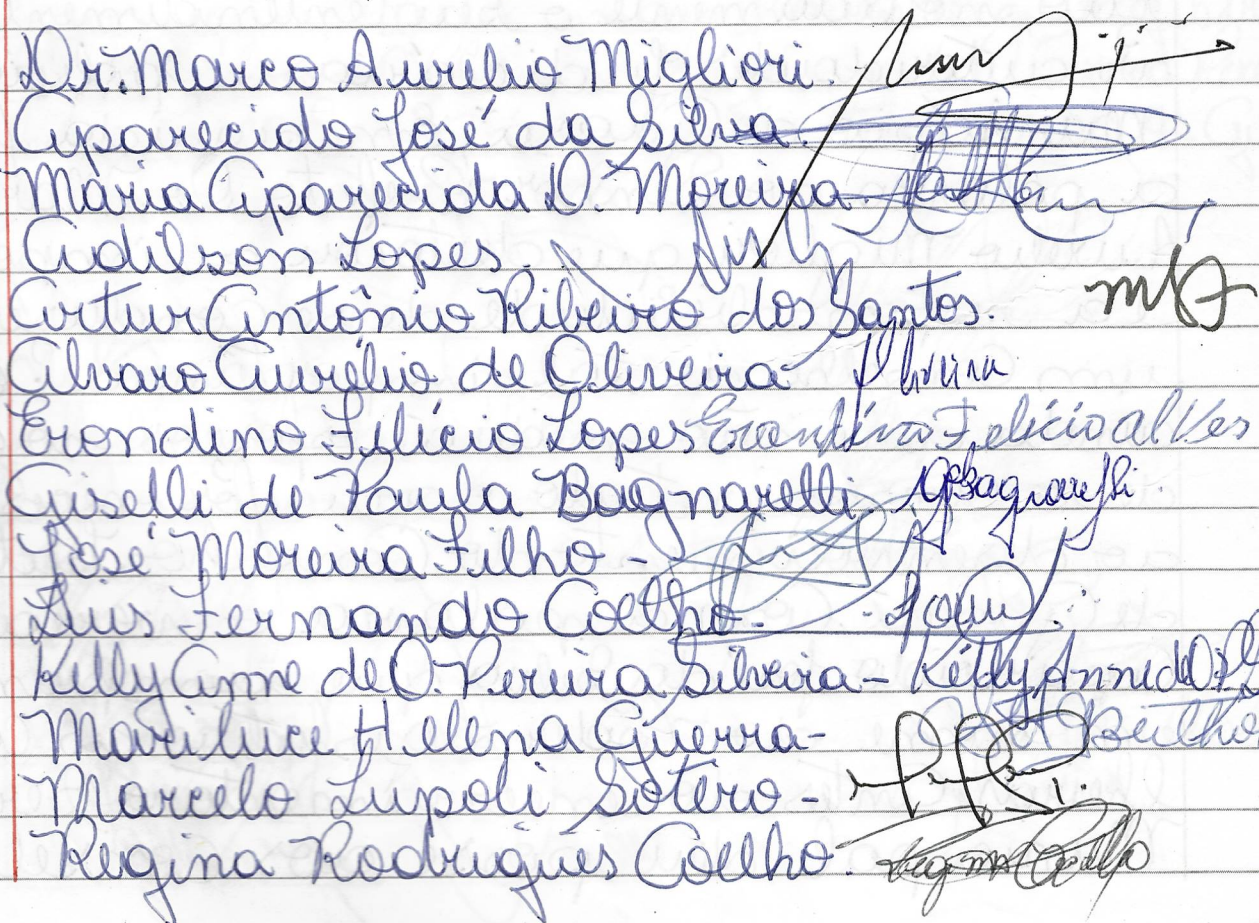 Dr. Marco Aurelio Migliori.
Aparecido José da Silva.
Maria Aparecida D. Moreira.
Adilson Lopes.
Artur Antônio Ribeiro dos Santos.
Alvaro Aurélio de Oliveira-
Erondino Felício Lopes Erondino Felício alves
Giselli de Paula Bagnarelli. GBagnarelli.
José Moreira Filho -
Luis Fernando Coelho. -
Kelly Anne de O. Pereira Silveira - Kelly Anne de O. P. S
Mariluce Helena Guerra-
Marcelo Lupoli Sotero -
Regina Rodrigues Coelho. Regina Coelho